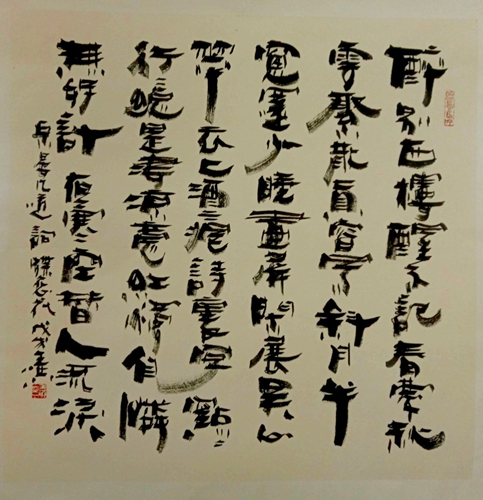 醉别西樓醒不記春夢秋
雲聚散真容易斜月半
窗還少睡畫屏閒展吳山
翠衣上酒痕詩裏字點〻
行〻總是淒凉意紅燭自憐
無好計夜寒空替人流淚
晏几道詞蝶恋花戊戌